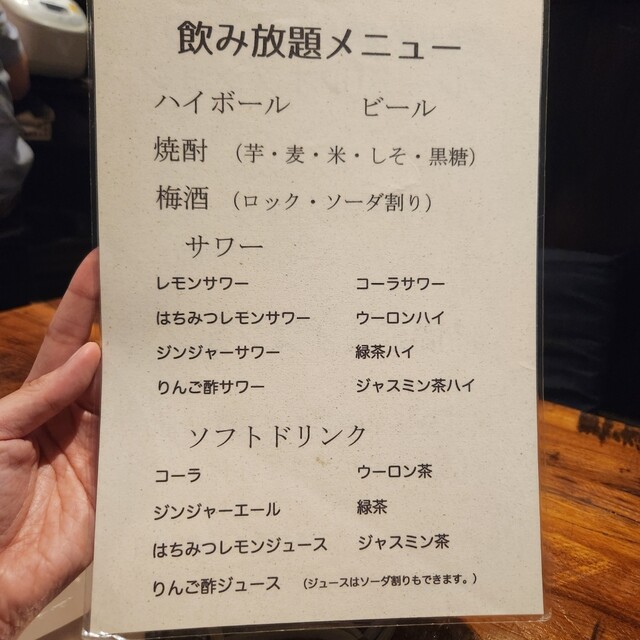 飲み放題メニュー
ハイボール ビール
焼酎 （芋・麦・米・しそ・黒糖）
梅酒 （ロック・ソーダ割り）
サワー
レモンサワー コーラサワー
はちみつレモンサワー ウーロンハイ
ジンジャーサワー 緑茶ハイ
りんご酢サワー ジャスミン茶ハイ
ソフトドリンク
コーラ ウーロン茶
ジンジャーエール 緑茶
はちみつレモンジュース ジャスミン茶
りんご酢ジュース （ジュースはソーダ割りもできます。）